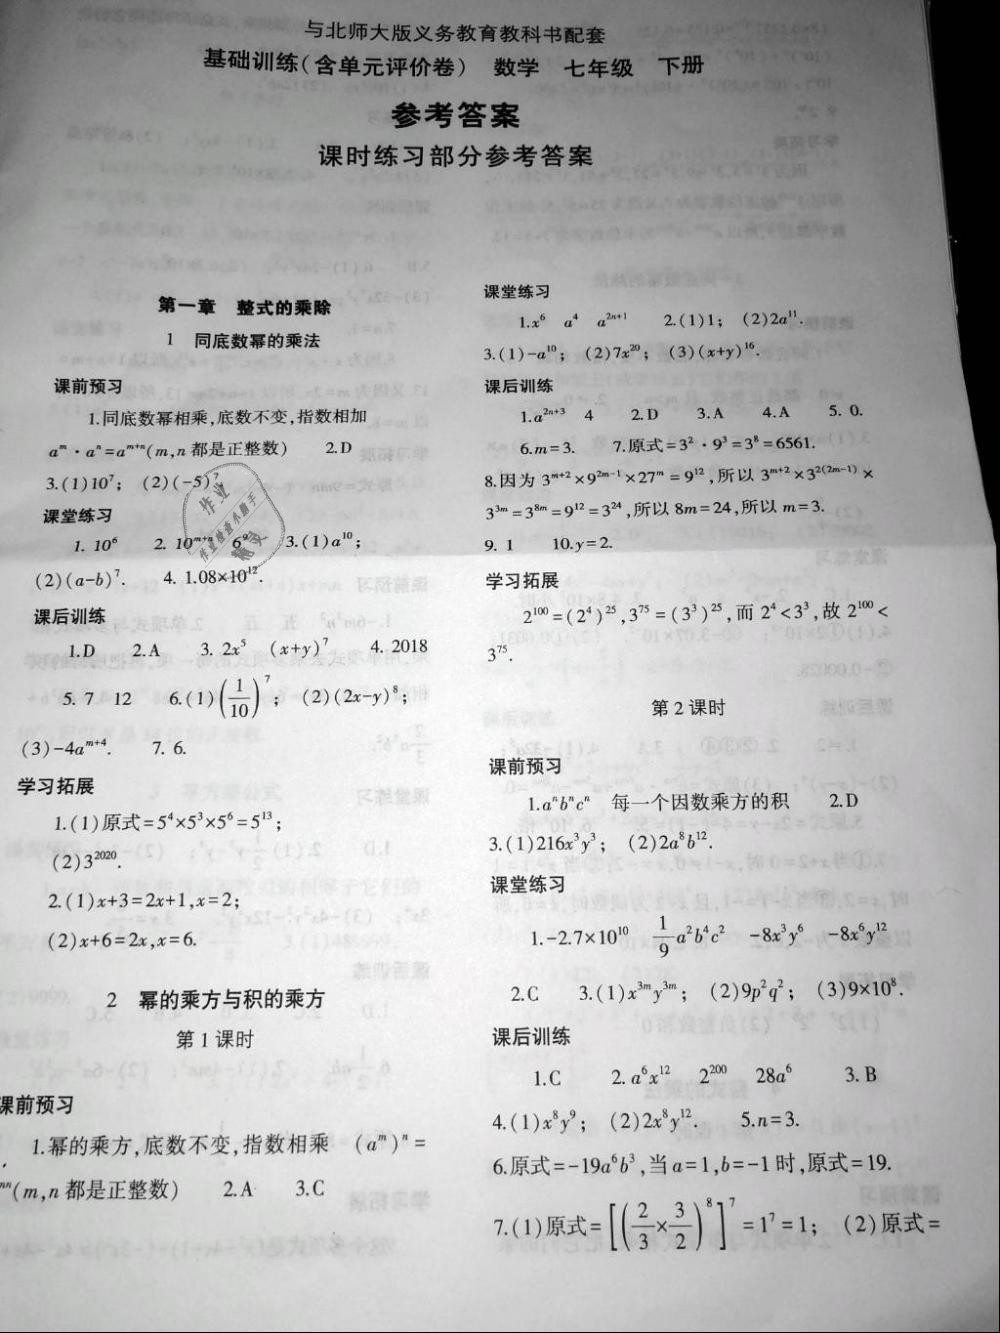 与北师大版义务教育教科书配套
基础训练(含单元评价卷) 数学 七年级 下册
参考答案
课时练习部分参考答案
第一章 整式的乘除
1 同底数幂的乘法
课前预习
1.同底数幂相乘,底数不变,指数相加
aᵐ·aⁿ=aᵐ⁺ⁿ(m,n都是正整数) 2.D
3.(1)10⁷; (2)(-5)⁷.
课堂练习
1. 10⁶ 2. 10ᵐ⁺ⁿ 6⁹ 3.(1)a¹⁰;
(2)(a-b)⁷. 4. 1.08×10¹².
课后训练
1.D 2.A 3. 2x⁵ (x+y)⁷ 4. 2018
5. 7 12 6.(1)(1/10)⁷; (2)(2x-y)⁸;
(3)-4aᵐ⁺⁴. 7. 6.
学习拓展
1.(1)原式=5⁴×5³×5⁶=5¹³;
(2)3²⁰²⁰.
2.(1)x+3=2x+1,x=2;
(2)x+6=2x,x=6.
2 幂的乘方与积的乘方
第1课时
课前预习
1.幂的乘方,底数不变,指数相乘 (aᵐ)ⁿ=
ᵐⁿ(m,n都是正整数) 2.A 3.C
课堂练习
1.x⁶ a⁴ a²ⁿ⁺¹ 2.(1)1; (2)2a¹¹.
3.(1)-a¹⁰; (2)7x²⁰; (3)(x+y)¹⁶.
课后训练
1.a²ⁿ⁺³ 4 2.D 3.A 4.A 5. 0.
6.m=3. 7.原式=3²·9³=3⁸=6561.
8.因为3ᵐ⁺²×9²ᵐ⁻¹×27ᵐ=9¹²,所以3ᵐ⁺²×3²⁽²ᵐ⁻¹⁾×
3³ᵐ=3⁸ᵐ=9¹²=3²⁴,所以8m=24,所以m=3.
9. 1 10.y=2.
学习拓展
2¹⁰⁰=(2⁴)²⁵,3⁷⁵=(3³)²⁵,而2⁴<3³,故2¹⁰⁰<
3⁷⁵.
第2课时
课前预习
1.aⁿbⁿcⁿ 每一个因数乘方的积 2.D
3.(1)216x³y³; (2)2a⁸b¹².
课堂练习
1.-2.7×10¹⁰ 1/9a²b⁴c² -8x³y⁶ -8x⁶y¹²
2.C 3.(1)x³ᵐy³ᵐ; (2)9p²q²; (3)9×10⁸.
课后训练
1.C 2.a⁶x¹² 2²⁰⁰ 28a⁶ 3.B
4.(1)x⁸y⁹; (2)2x⁸y¹². 5.n=3.
6.原式=-19a⁶b³,当a=1,b=-1时,原式=19.
7.(1)原式=[(2/3×3/2)⁸]⁷=1⁷=1; (2)原式=